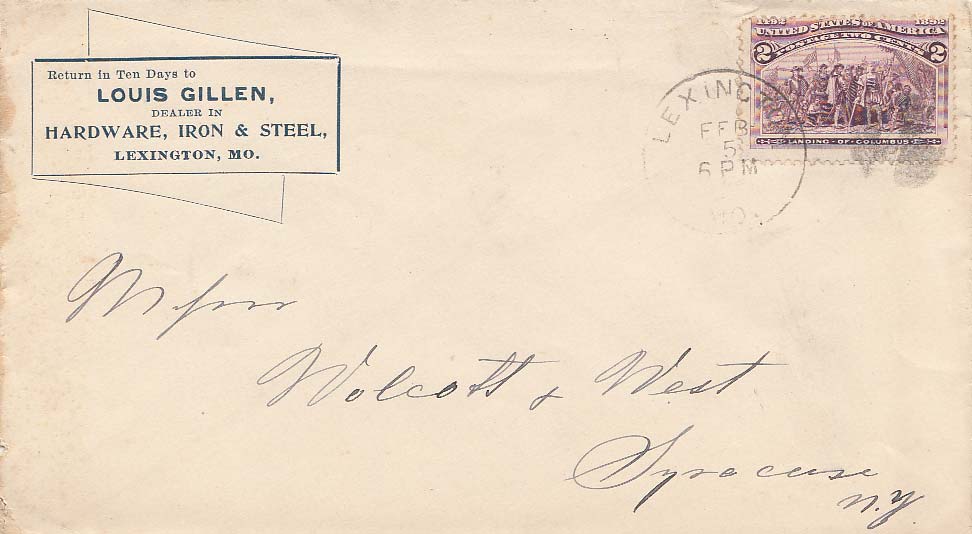 Return in Ten Days to
LOUIS GILLEN,
DEALER IN
HARDWARE, IRON & STEEL,
LEXINGTON, MO.
1492 1892
UNITED STATES OF AMERICA
2 POSTAGE TWO CENTS 2
LANDING · OF · COLUMBUS
LEXING
FEB
5
6 PM
MO.
Messrs
Wolcott & West
Syracuse
N.Y